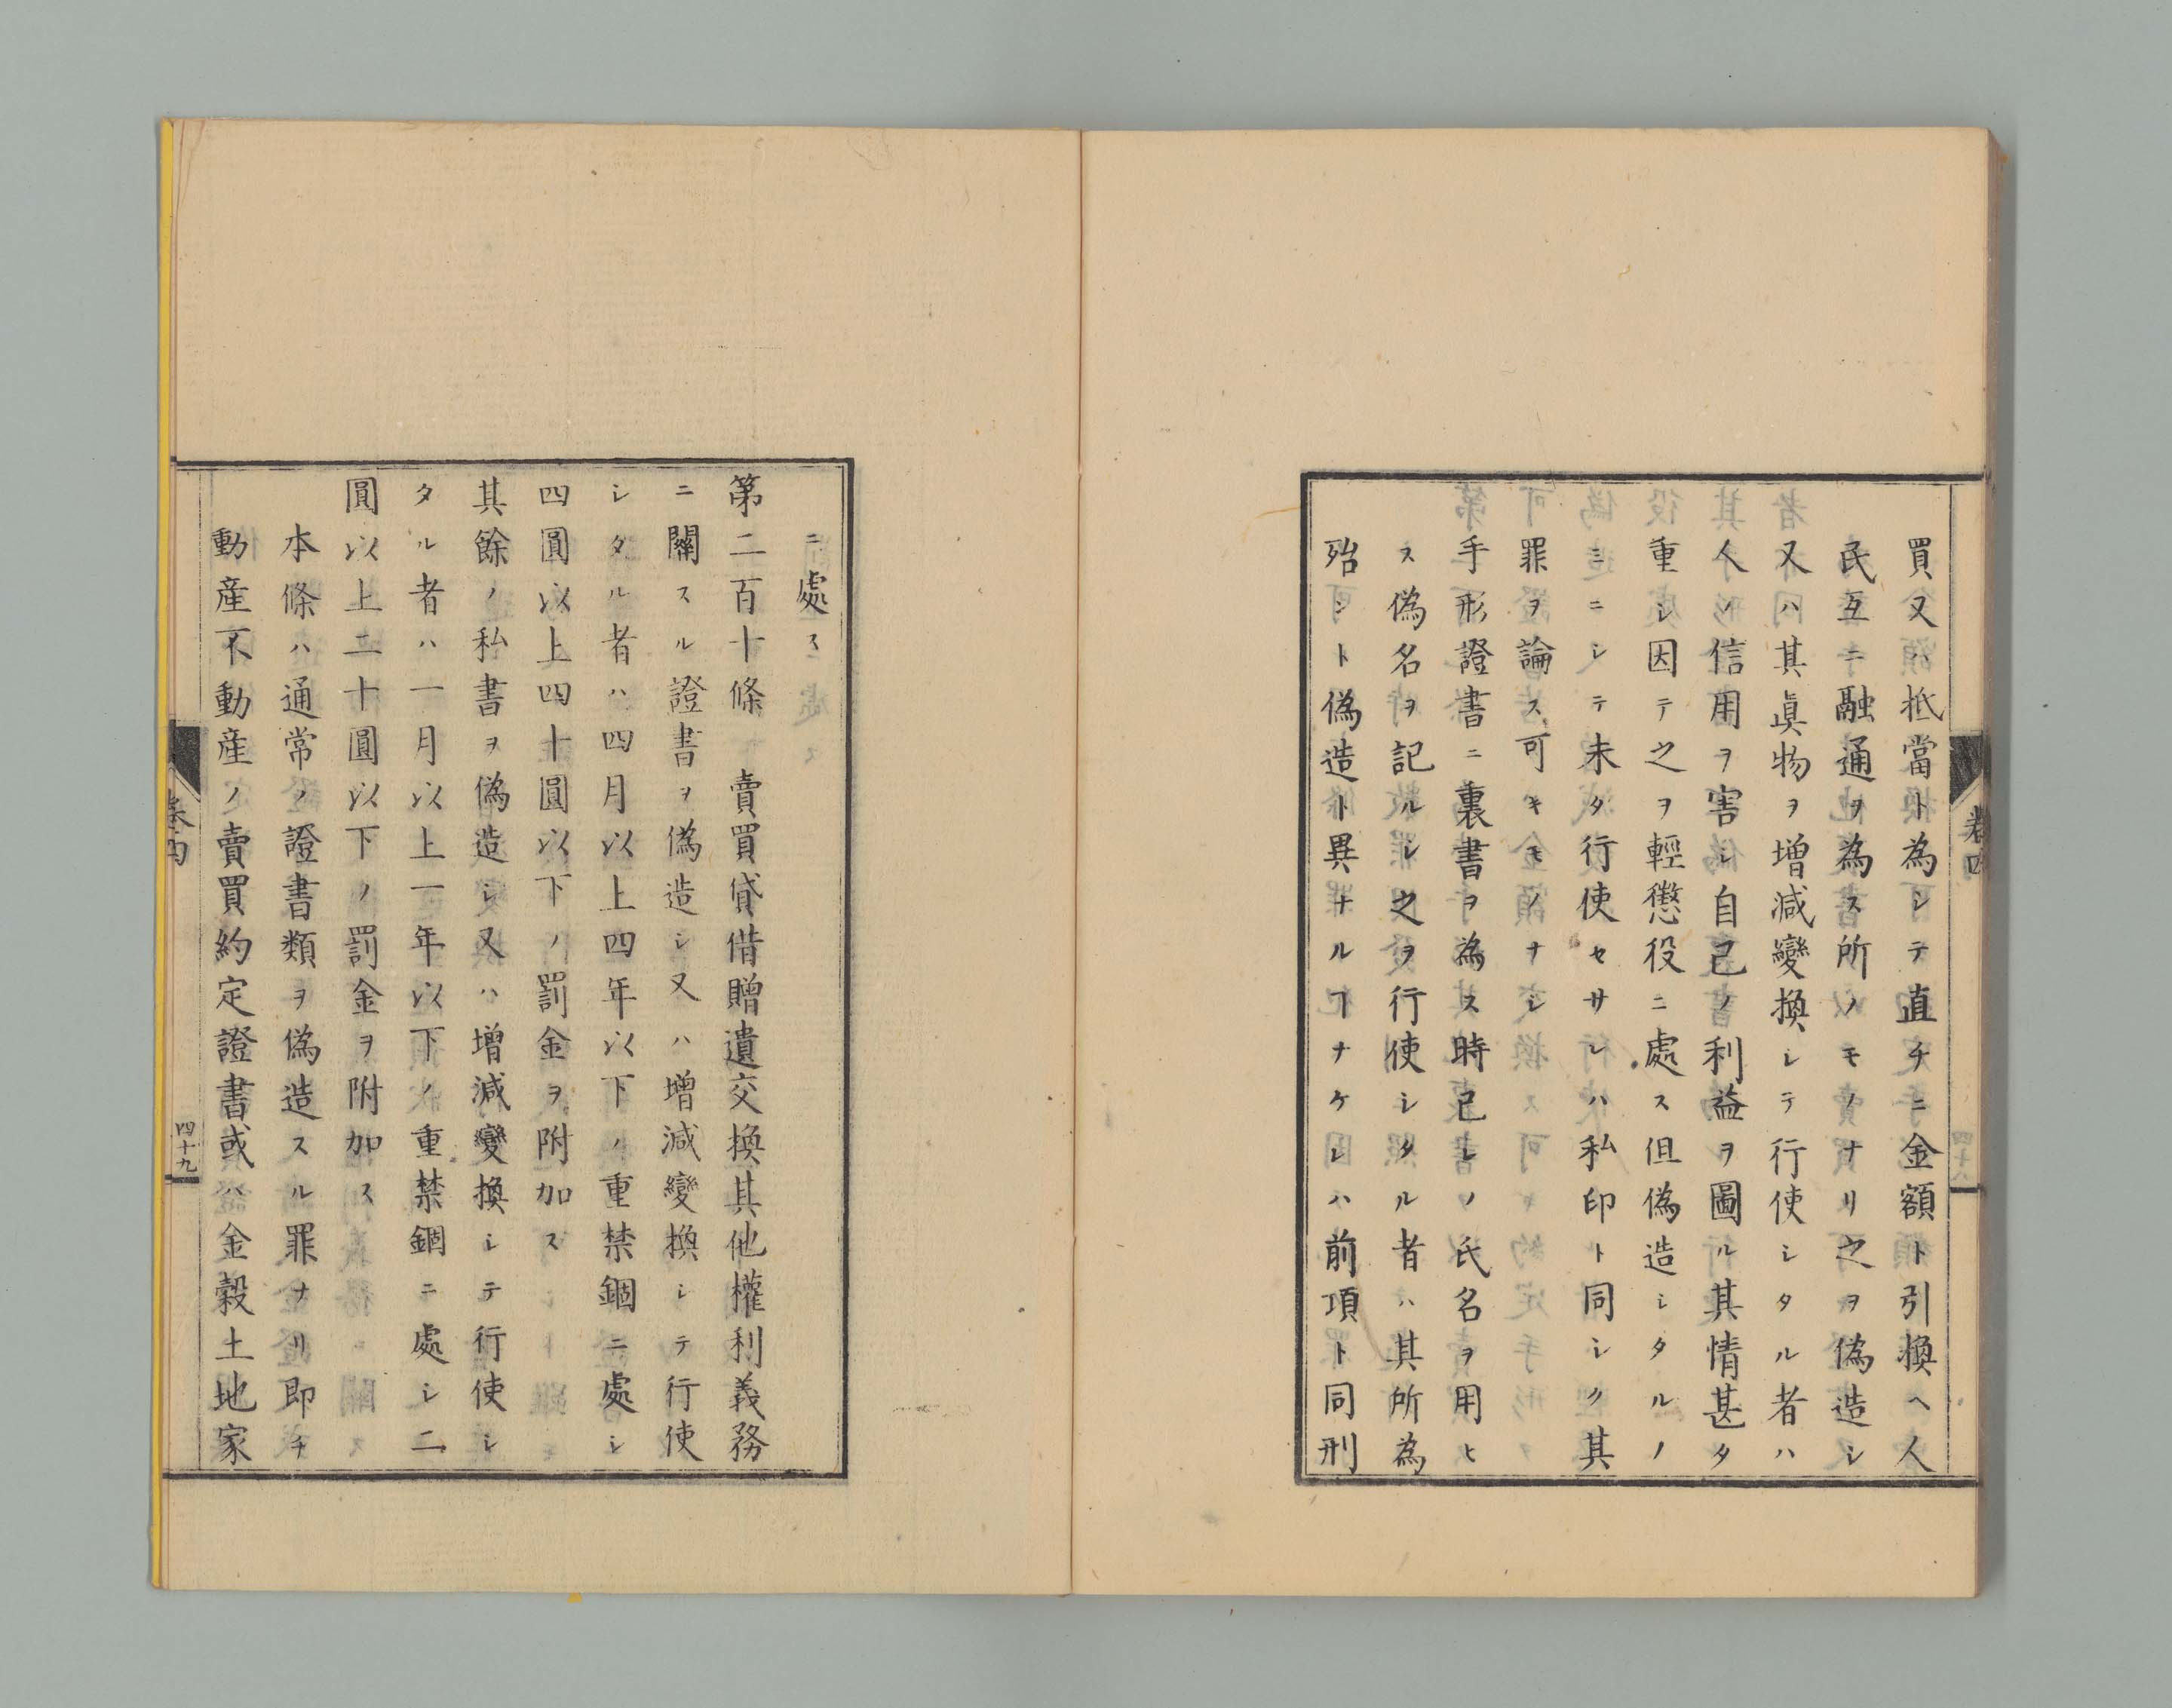 買又ハ抵當ト為シテ直チニ金額ト引換ヘ人
民互ニ融通ヲ為ス所ノモノナリ之ヲ偽造シ
又ハ其眞物ヲ增減變換シテ行使シタル者ハ
人ノ信用ヲ害シ自己ノ利益ヲ圖ル其情甚タ
重シ因テ之ヲ輕懲役ニ處ス但偽造シタルノ
ミニシテ未タ行使セサレハ私印ト同シク其
罪ヲ論ス可キモノナシ
手形證書ニ裏書ヲ為ス時己レノ氏名ヲ用ヒ
ス偽名ヲ記ルシ之ヲ行使シタル者ハ其所為
殆ント偽造ト異ナルヿナケレハ前項ト同刑
卷四
ニ處ス
第二百十條 賣買貸借贈遺交換其他權利義務
ニ關スル證書ヲ偽造シ又ハ增減變換シテ行使
シタル者ハ四月以上四年以下ノ重禁錮ニ處シ
四圓以上四十圓以下ノ罰金ヲ附加ス
其餘ノ私書ヲ偽造シ又ハ增減變換シテ行使シ
タル者ハ一月以上一年以下ノ重禁錮ニ處シ二
圓以上二十圓以下ノ罰金ヲ附加ス
本條ハ通常ノ證書類ヲ偽造スル罪ナリ即チ
動産不動産ノ賣買約定證書或ハ金穀土地家
卷四
四十九